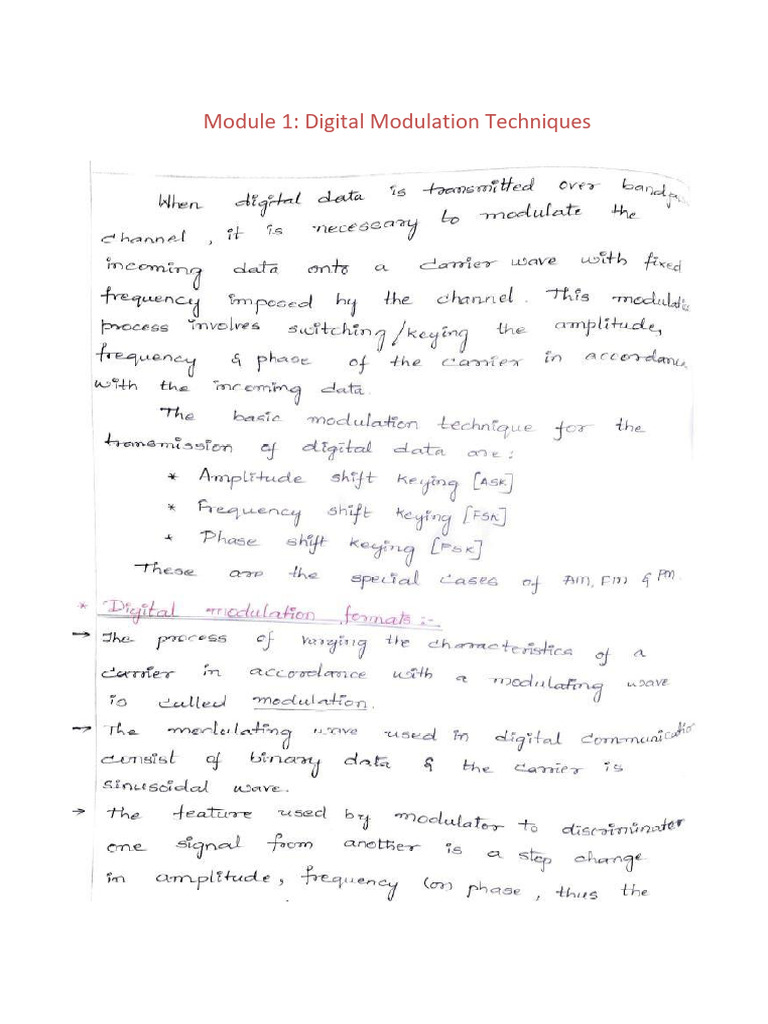 Module 1: Digital Modulation Techniques
When digital data is transmitted over bandpa
channel, it is necessary to modulate the
incoming data onto a carrier wave with fixed
frequency imposed by the channel. This modulatio
process involves switching/keying the amplitude,
frequency & phase of the carrier in accordanc
with the incoming data.
The basic modulation technique for the
transmission of digital data are:
* Amplitude shift keying [ASK]
* Frequency shift keying [FSK]
* Phase shift keying [PSK]
These are the special cases of AM, FM & PM.
* Digital modulation formats :-
→ The process of varying the characteristics of a
carrier in accordance with a modulating wave
is called modulation.
→ The modulating wave used in digital communicatio
consist of binary data & the carrier is
sinusoidal wave.
→ The feature used by modulator to discriminater
one signal from another is a step change
in amplitude, frequency (or) phase, thus the